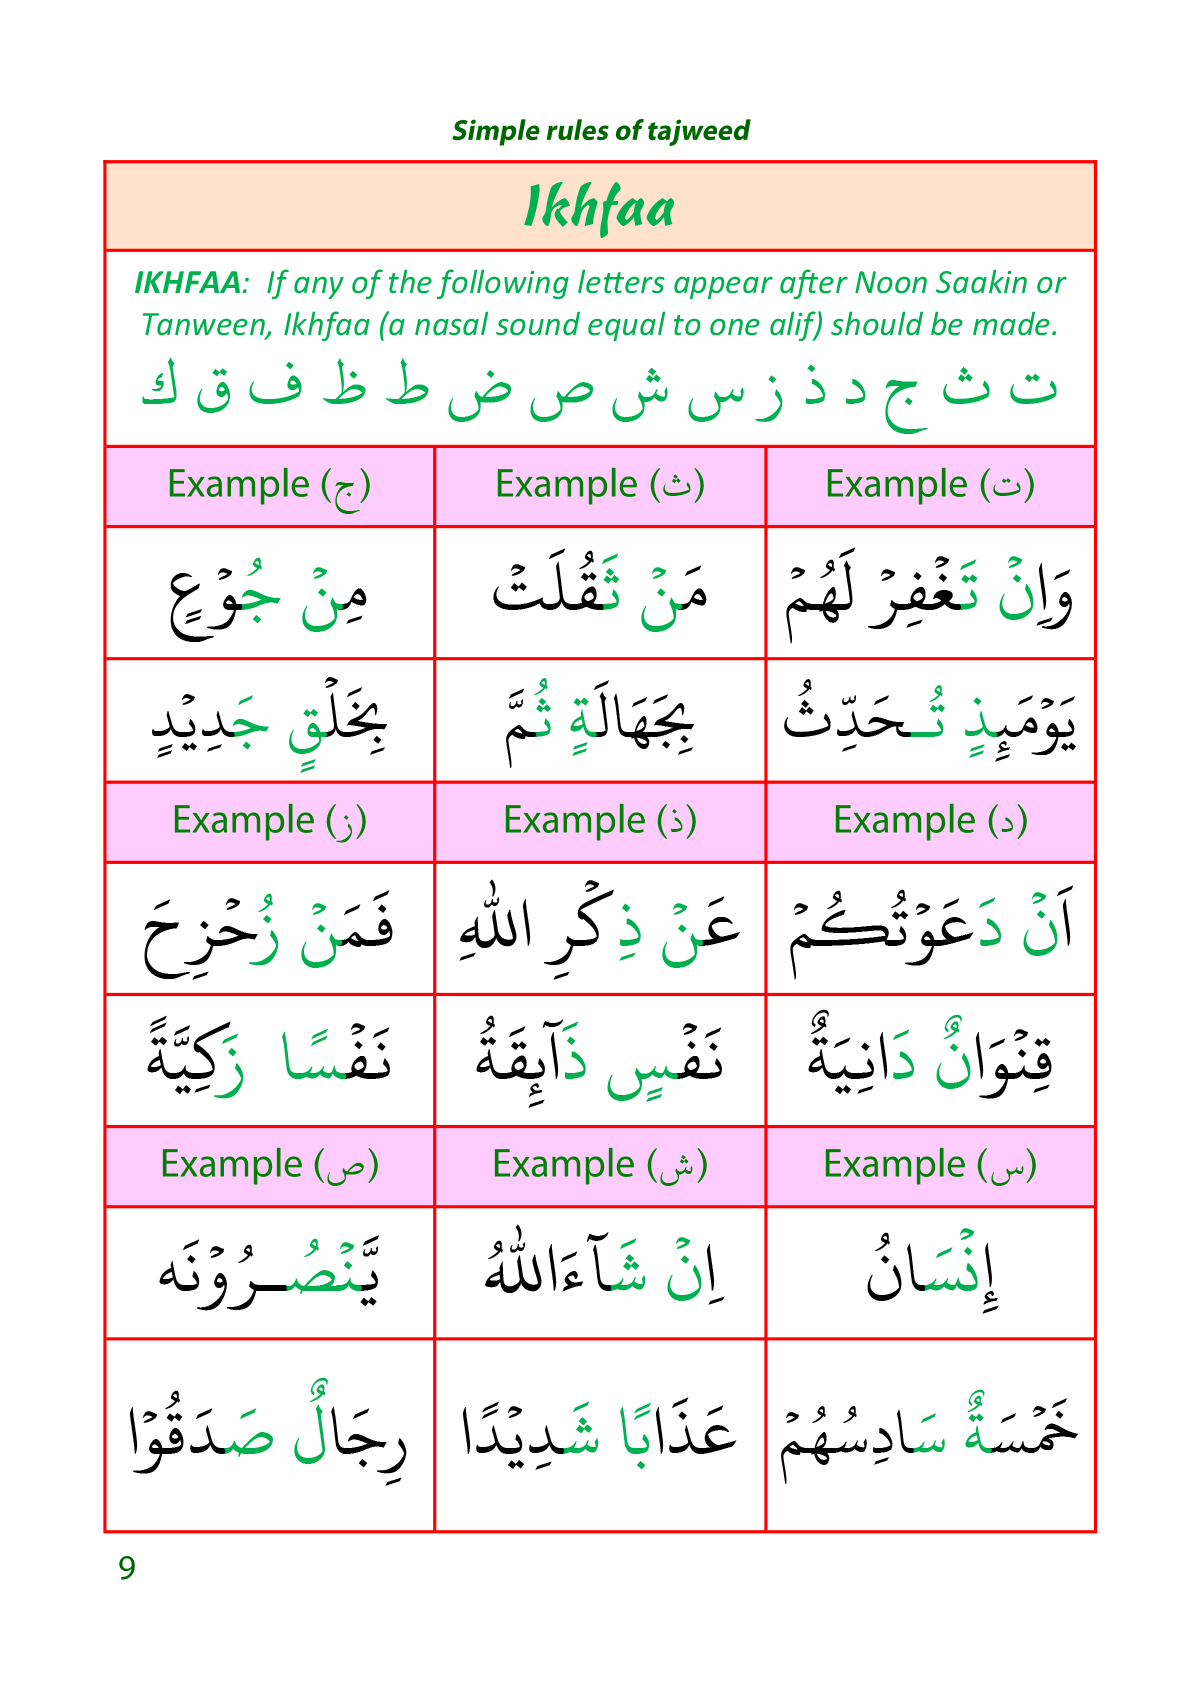 Simple rules of tajweed
Ikhfaa
IKHFAA: If any of the following letters appear after Noon Saakin or
Tanween, Ikhfaa (a nasal sound equal to one alif) should be made.
ت ث ج د ذ ز س ش ص ض ط ظ ف ق ك
Example (ت) Example (ث) Example (ج)
وَاِنْ تَغْفِرْ لَهُمْ مَنْ ثَقُلَتْ مِنْ جُوْعٍ
يَوْمَئِذٍ تُـحَدِّثُ بِجَهَالَةٍ ثُمَّ بِخَلْقٍ جَدِيْدٍ
Example (د) Example (ذ) Example (ز)
اَنْ دَعَوْتُكُمْ عَنْ ذِكْرِ اللهِ فَمَنْ زُحْزِحَ
قِنْوَانٌ دَانِيَةٌ نَفْسٍ ذَآئِقَةُ نَفْسًا زَكِيَّةً
Example (س) Example (ش) Example (ص)
إِنْسَانُ اِنْ شَآءَاللهُ يَّنْصُـرُوْنَه
خَمْسَةٌ سَادِسُهُمْ عَذَابًا شَدِيْدًا رِجَالٌ صَدَقُوْا
9